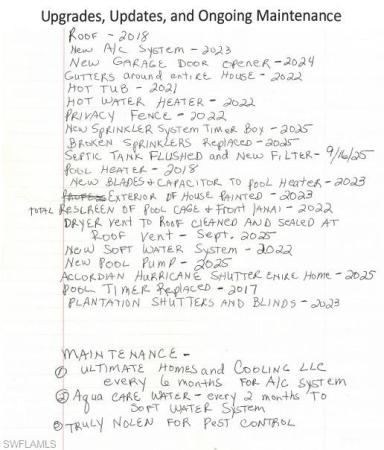 Upgrades, Updates, and Ongoing Maintenance
ROOF - 2018
New A/C System - 2023
NEW GARAGE DOOR OPENER - 2024
GUTTERS around ENTIRE HOUSE - 2022
HOT TUB - 2021
HOT WATER HEATER - 2022
PRIVACY FENCE - 2022
NEW SPRINKLER SYSTEM TIMER BOX - 2025
BROKEN SPRINKLERS REPLACED - 2025
SEPTIC TANK FLUSHED and NEW FILTER - 9/16/25
POOL HEATER - 2018
NEW BLADES + CAPACITOR TO POOL HEATER - 2023
EXTERIOR OF HOUSE PAINTED - 2023
TOTAL RESCREEN OF POOL CAGE + FRONT LANAI - 2022
DRYER VENT TO ROOF CLEANED AND SEALED AT
ROOF VENT - SEPT. 2025
NEW SOFT WATER SYSTEM - 2022
NEW POOL PUMP - 2025
ACCORDIAN HURRICANE SHUTTER ENIRE HOME - 2025
POOL TIMER REPLACED - 2017
PLANTATION SHUTTERS AND BLINDS - 2023
MAINTENANCE -
① ULTIMATE HOMES and COOLING LLC
every 6 months FOR A/C SYSTEM
② Aqua CARE WATER - every 2 months TO
SOFT WATER SYSTEM
③ TRULY NOLEN FOR PEST CONTROL
SWFLAMLS